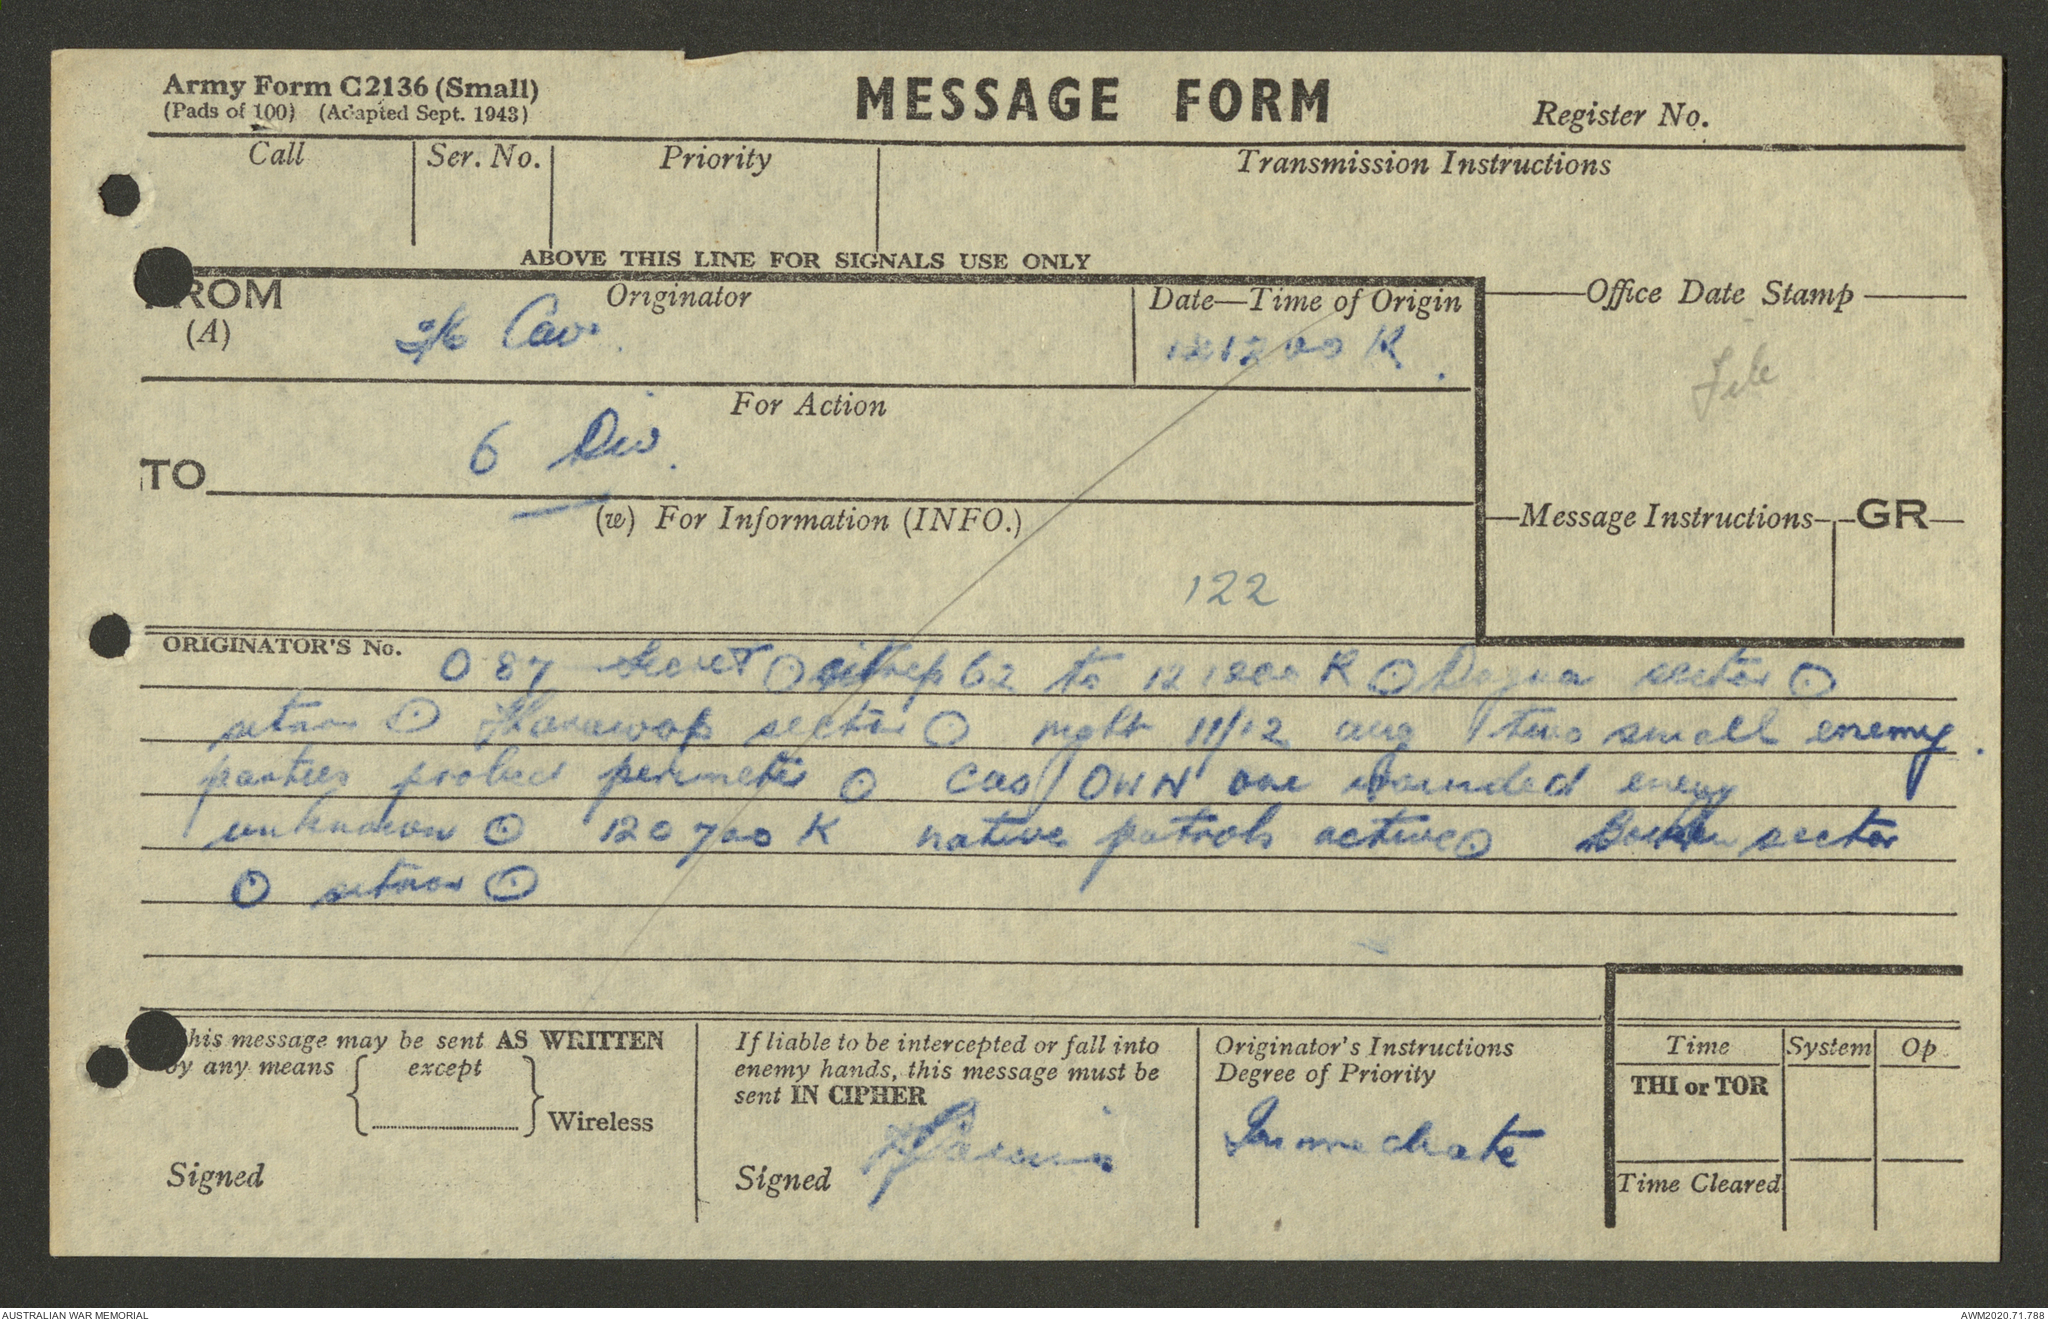 Army Form C2136 (Small)
(Pads of 100) (Adapted Sept. 1943)
MESSAGE FORM
Register No.
Call
Ser. No.
Priority
Transmission Instructions
ABOVE THIS LINE FOR SIGNALS USE ONLY
FROM
(A)
Originator
2/6 Cav.
Date—Time of Origin
121200 K.
Office Date Stamp
File
For Action
TO
6 Div.
(W) For Information (INFO.)
122
Message Instructions
GR
ORIGINATOR'S No.
O 87 secret ⊙ sitrep 62 to 121200 K ⊙ Dagua sector ⊙
sitnor ⊙ sector ⊙ night 11/12 aug two small enemy
parties probed perimeter ⊙ cas/OWN one wounded enemy
unknown ⊙ 120700 K native patrols active ⊙ sector
⊙ sitnor ⊙
This message may be sent AS WRITTEN
by any means except
Wireless
Signed
If liable to be intercepted or fall into
enemy hands, this message must be
sent IN CIPHER
Signed
Originator's Instructions
Degree of Priority
Immediate
Time
System
Op
THI or TOR
Time Cleared
AUSTRALIAN WAR MEMORIAL
AWM2020.71.788